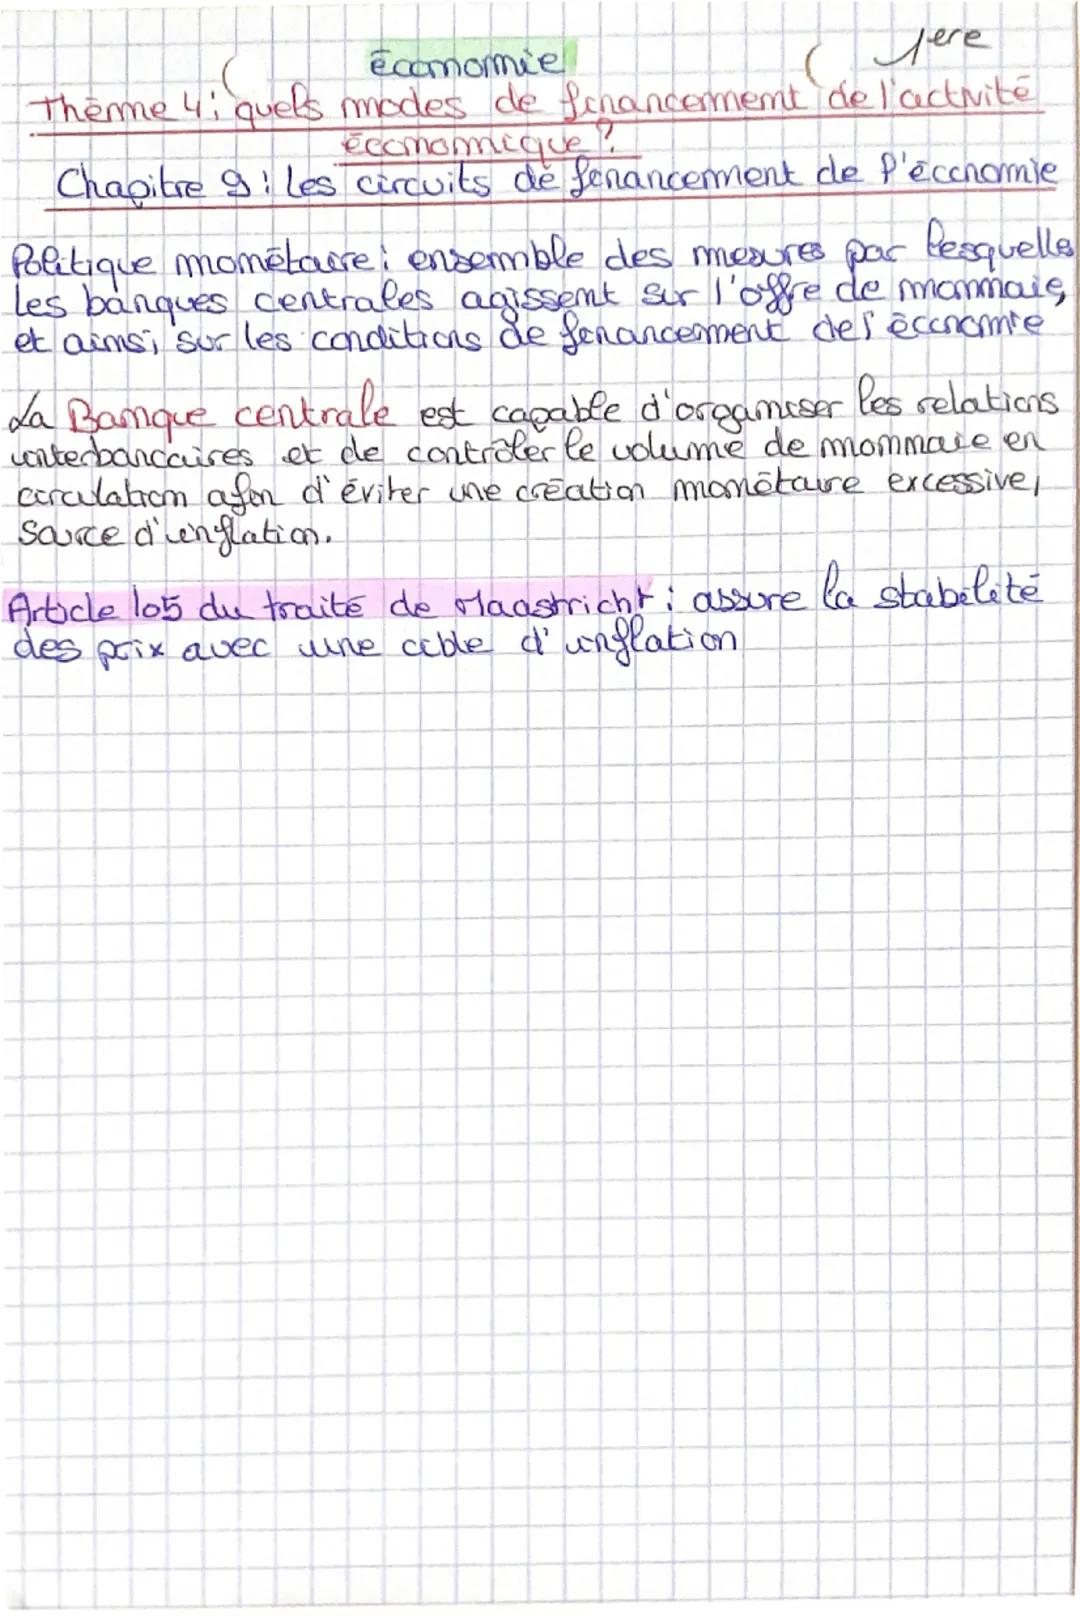 économie
1ere
Thème 4 : quels modes de financement de l'activité
économique ?
Chapitre 9 : les circuits de financement de l'économie
Politique monétaire : ensemble des mesures par lesquelles
les banques centrales agissent sur l'offre de monnaie,
et ainsi, sur les conditions de financement de l'économie
La Banque centrale est capable d'organiser les relations
interbancaires et de contrôler le volume de monnaie en
circulation afin d'éviter une création monétaire excessive,
source d'inflation.
Article 105 du traité de Maastricht : assure la stabilité
des prix avec une cible d'inflation